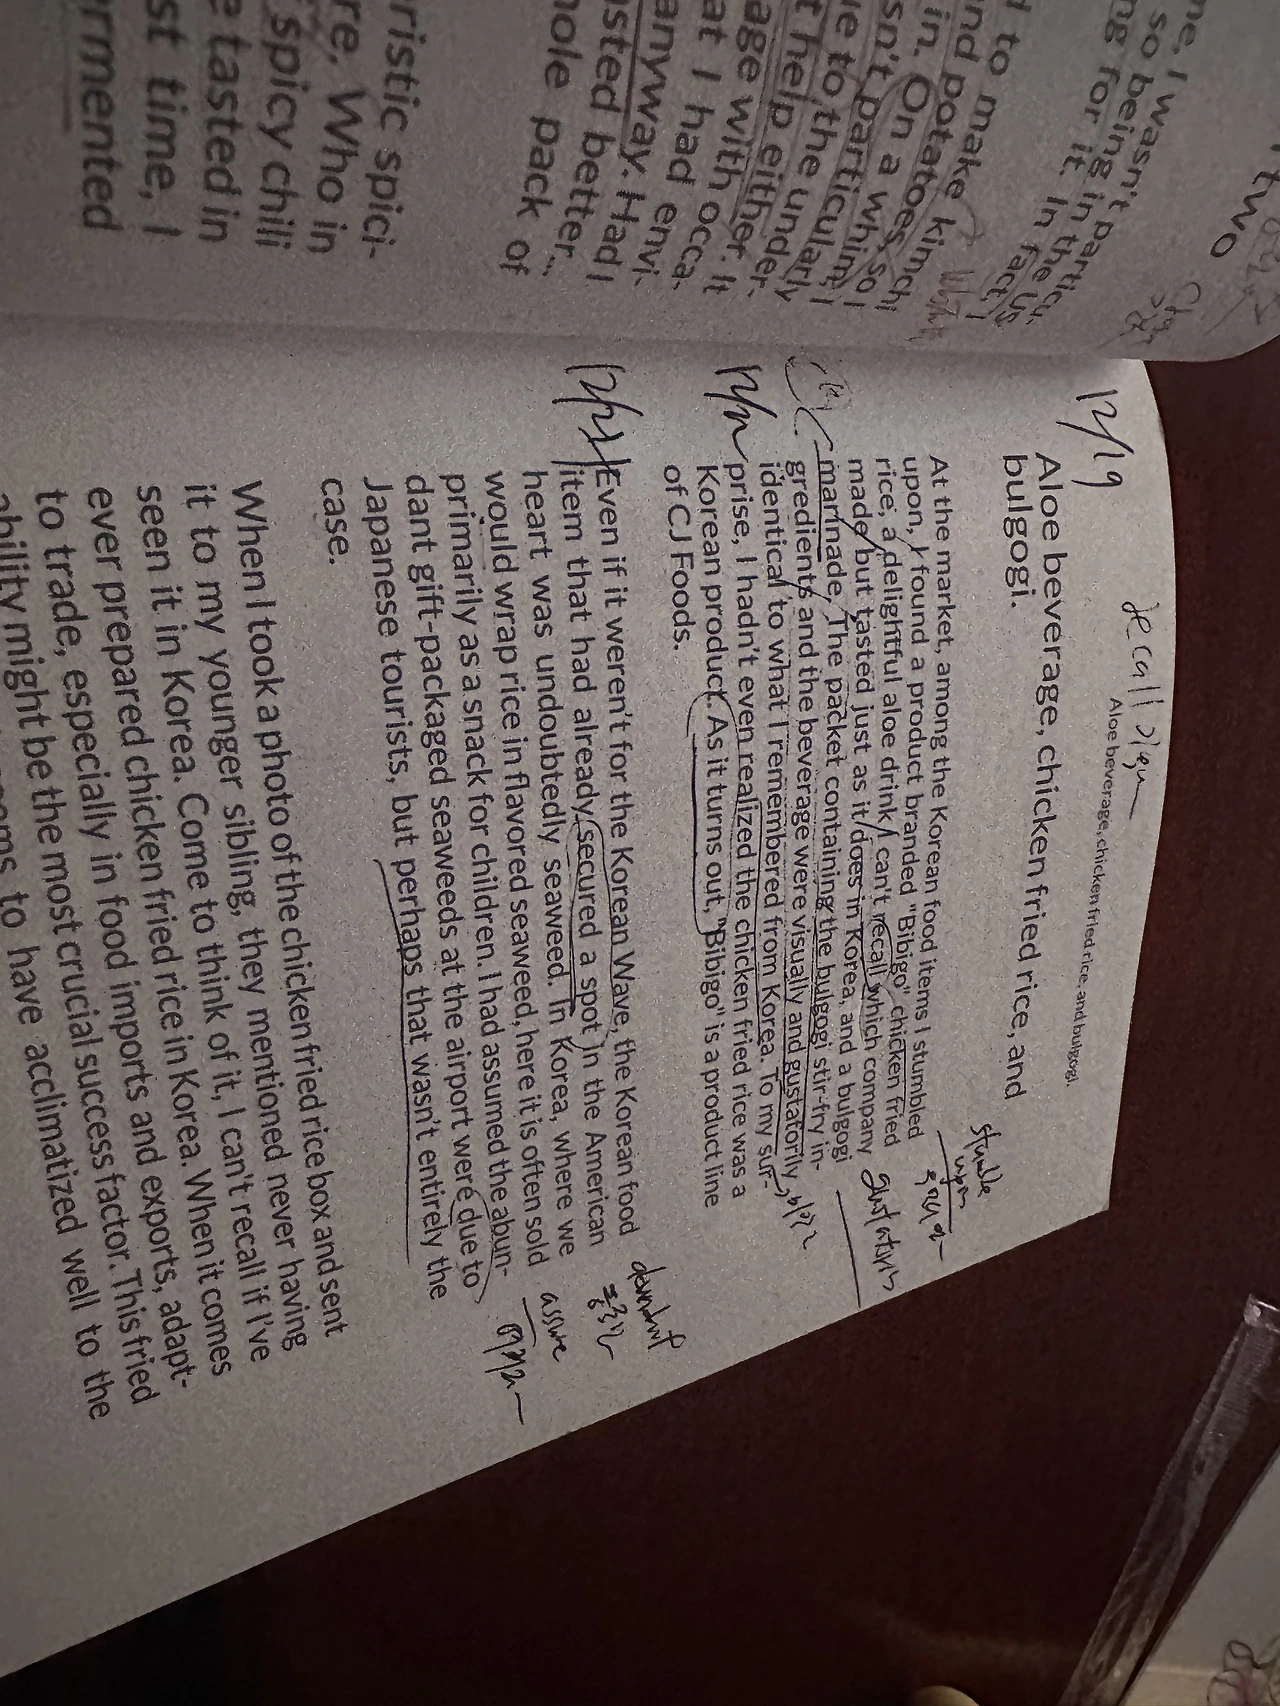 two
me, I wasn't particu-
so being in the US
ng for it. In fact, I
d to make kimchi
and potatoes, so I
in. On a whim, I
sn't particularly
ue to the under-
t help either. It
age with occa-
at I had envi-
anyway. Had I
sted better...
hole pack of
ristic spici-
re. Who in
spicy chili
e tasted in
st time, I
ermented
recall
Aloe beverage, chicken fried rice, and bulgogi.
12/19
Aloe beverage, chicken fried rice, and
bulgogi.
At the market, among the Korean food items I stumbled
upon, I found a product branded "Bibigo" chicken fried
rice, a delightful aloe drink I can't recall which company
made but tasted just as it does in Korea, and a bulgogi
marinade. The packet containing the bulgogi stir-fry in-
gredients and the beverage were visually and gustatorily
identical to what I remembered from Korea. To my sur-
prise, I hadn't even realized the chicken fried rice was a
Korean product. As it turns out, "Bibigo" is a product line
of CJ Foods.
stumble
upon
12/21
Even if it weren't for the Korean Wave, the Korean food
item that had already secured a spot in the American
heart was undoubtedly seaweed. In Korea, where we
would wrap rice in flavored seaweed, here it is often sold
primarily as a snack for children. I had assumed the abun-
dant gift-packaged seaweeds at the airport were due to
Japanese tourists, but perhaps that wasn't entirely the
case.
When I took a photo of the chicken fried rice box and sent
it to my younger sibling, they mentioned never having
seen it in Korea. Come to think of it, I can't recall if I've
ever prepared chicken fried rice in Korea. When it comes
to trade, especially in food imports and exports, adapt-
ability might be the most crucial success factor. This fried
to have acclimatized well to the